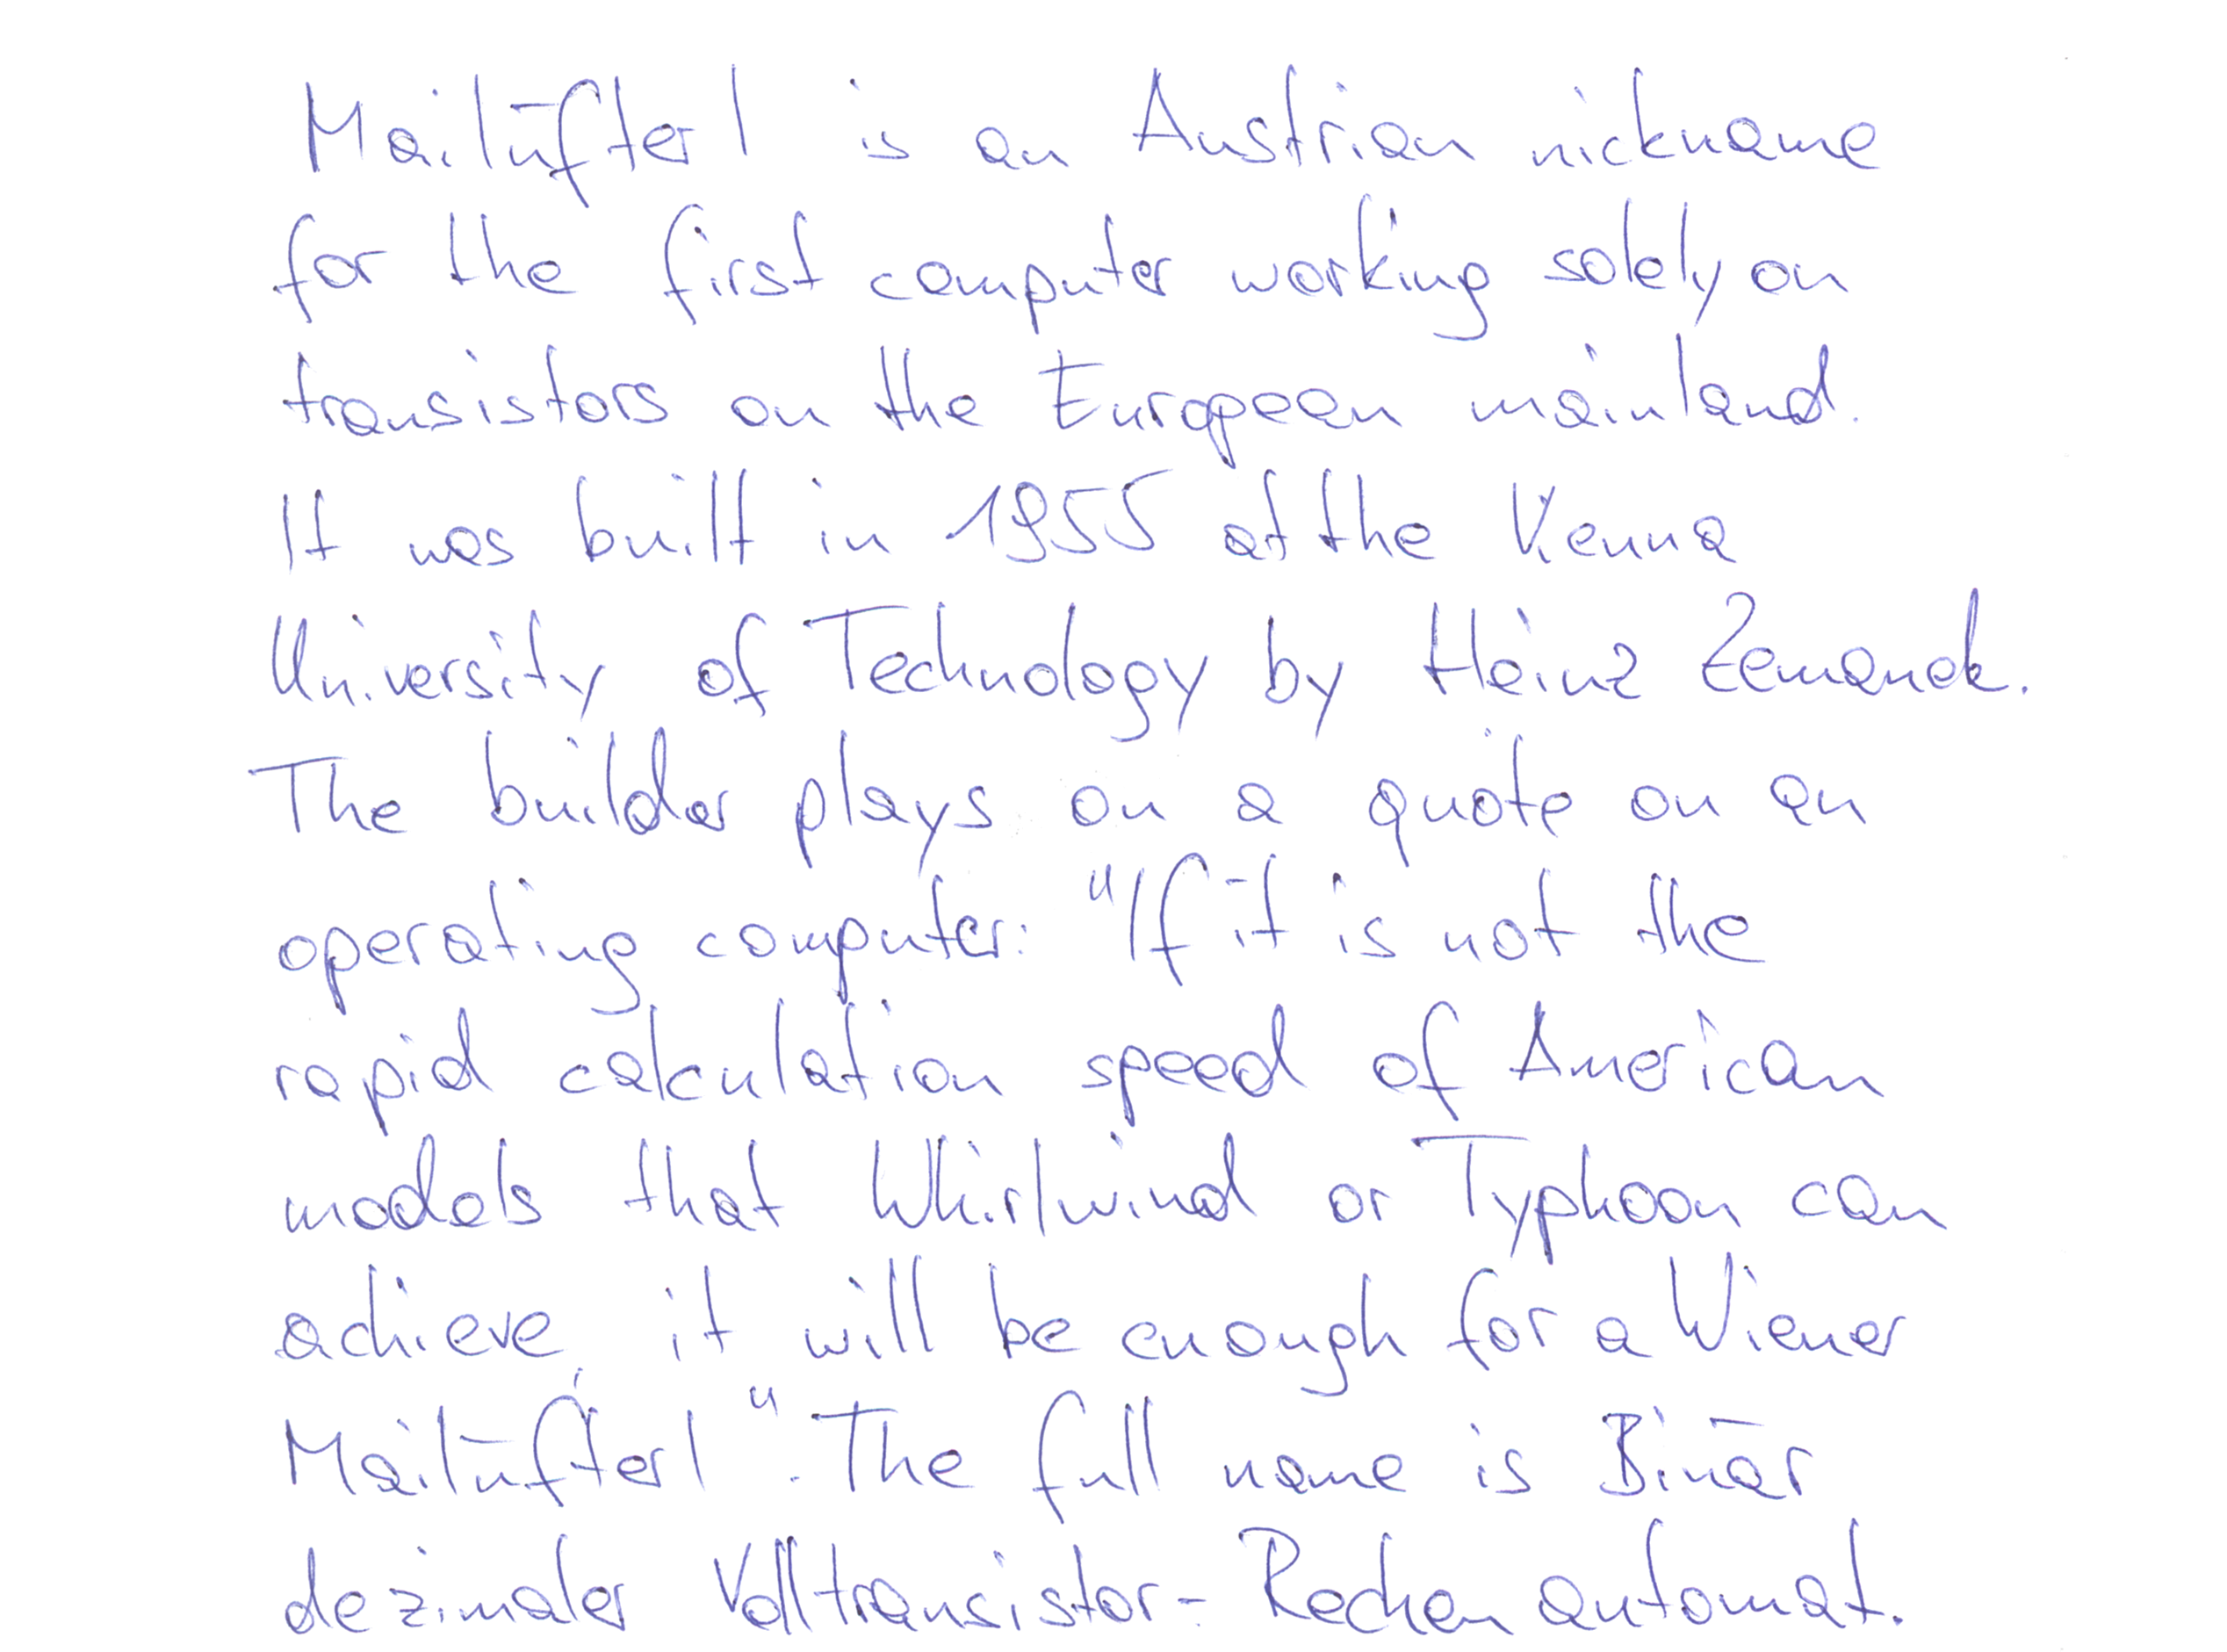 Mailüfterl is an Austrian nickname
for the first computer working solely on
transistors on the European mainland.
It was built in 1955 at the Vienna
University of Technology by Heinz Zemanek.
The builder plays on a quote on an
operating computer: "If it is not the
rapid calculation speed of American
models that Whirlwind or Typhoon can
achieve, it will be enough for a Wiener
Mailüfterl". The full name is Binär
dezimaler Volltransistor-Rechenautomat.